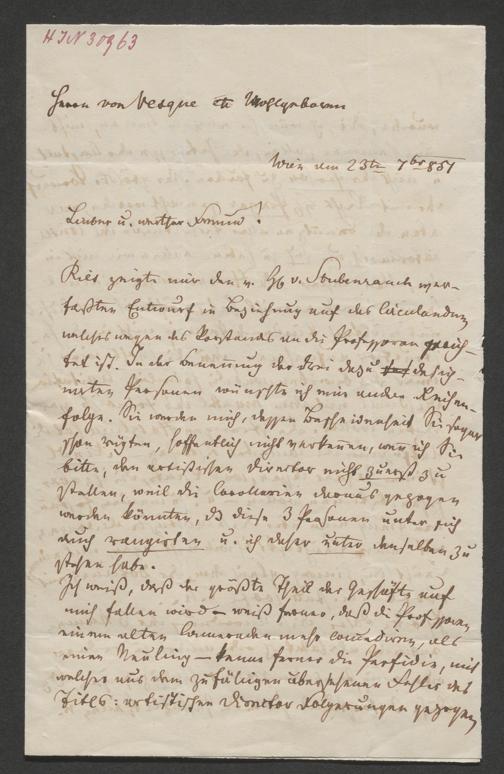 HIN 30963
Herrn von Vesque etc Wohlgeboren
Wien am 23te 7ber 851
Lieber u. werther Freund!
Ries zeigte mir den v. H v. Sonnleithner ver-
faßten Entwurf in Beziehung auf das Circulandum
welches wegen des Vorstandes an die Professoren gerich-
tet ist. In der Benennung der drei dazu desig-
nirten Personen wünschte ich eine andere Reihen-
folge. Sie werden mich, dessen Bescheidenheit Sie sogar
schon rügten, hoffentlich nicht verkennen, wenn ich Sie
bitte, den artistischen Director nicht zuerst zu
stellen, weil die Corollarien daraus gezogen
werden könnten, daß diese 3 Personen unter sich
auch rangirten u. ich daher unter denselben zu
stehen habe.
Ich weiß, daß der größte Theil der Geschäfte auf
mich fallen wird – weiß ferner, daß die Professoren
einem alten Cameraden mehr, als
einem Neuling – kenne ferner die Perfidie, mit
welcher aus dem zufälligen übersehenen Fehler des
Titels: artistischer Director Folgerungen gezogen